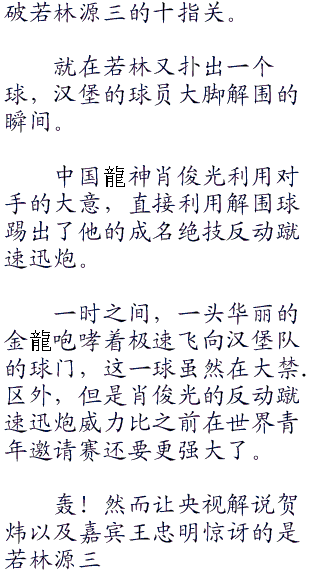 破若林源三的十指关。
就在若林又扑出一个
球，汉堡的球员大脚解围的
瞬间。
中国龍神肖俊光利用对
手的大意，直接利用解围球
踢出了他的成名绝技反动蹴
速迅炮。
一时之间，一头华丽的
金龍咆哮着极速飞向汉堡队
的球门，这一球虽然在大禁.
区外，但是肖俊光的反动蹴
速迅炮威力比之前在世界青
年邀请赛还要更强大了。
轰！然而让央视解说贺
炜以及嘉宾王忠明惊讶的是
若林源三